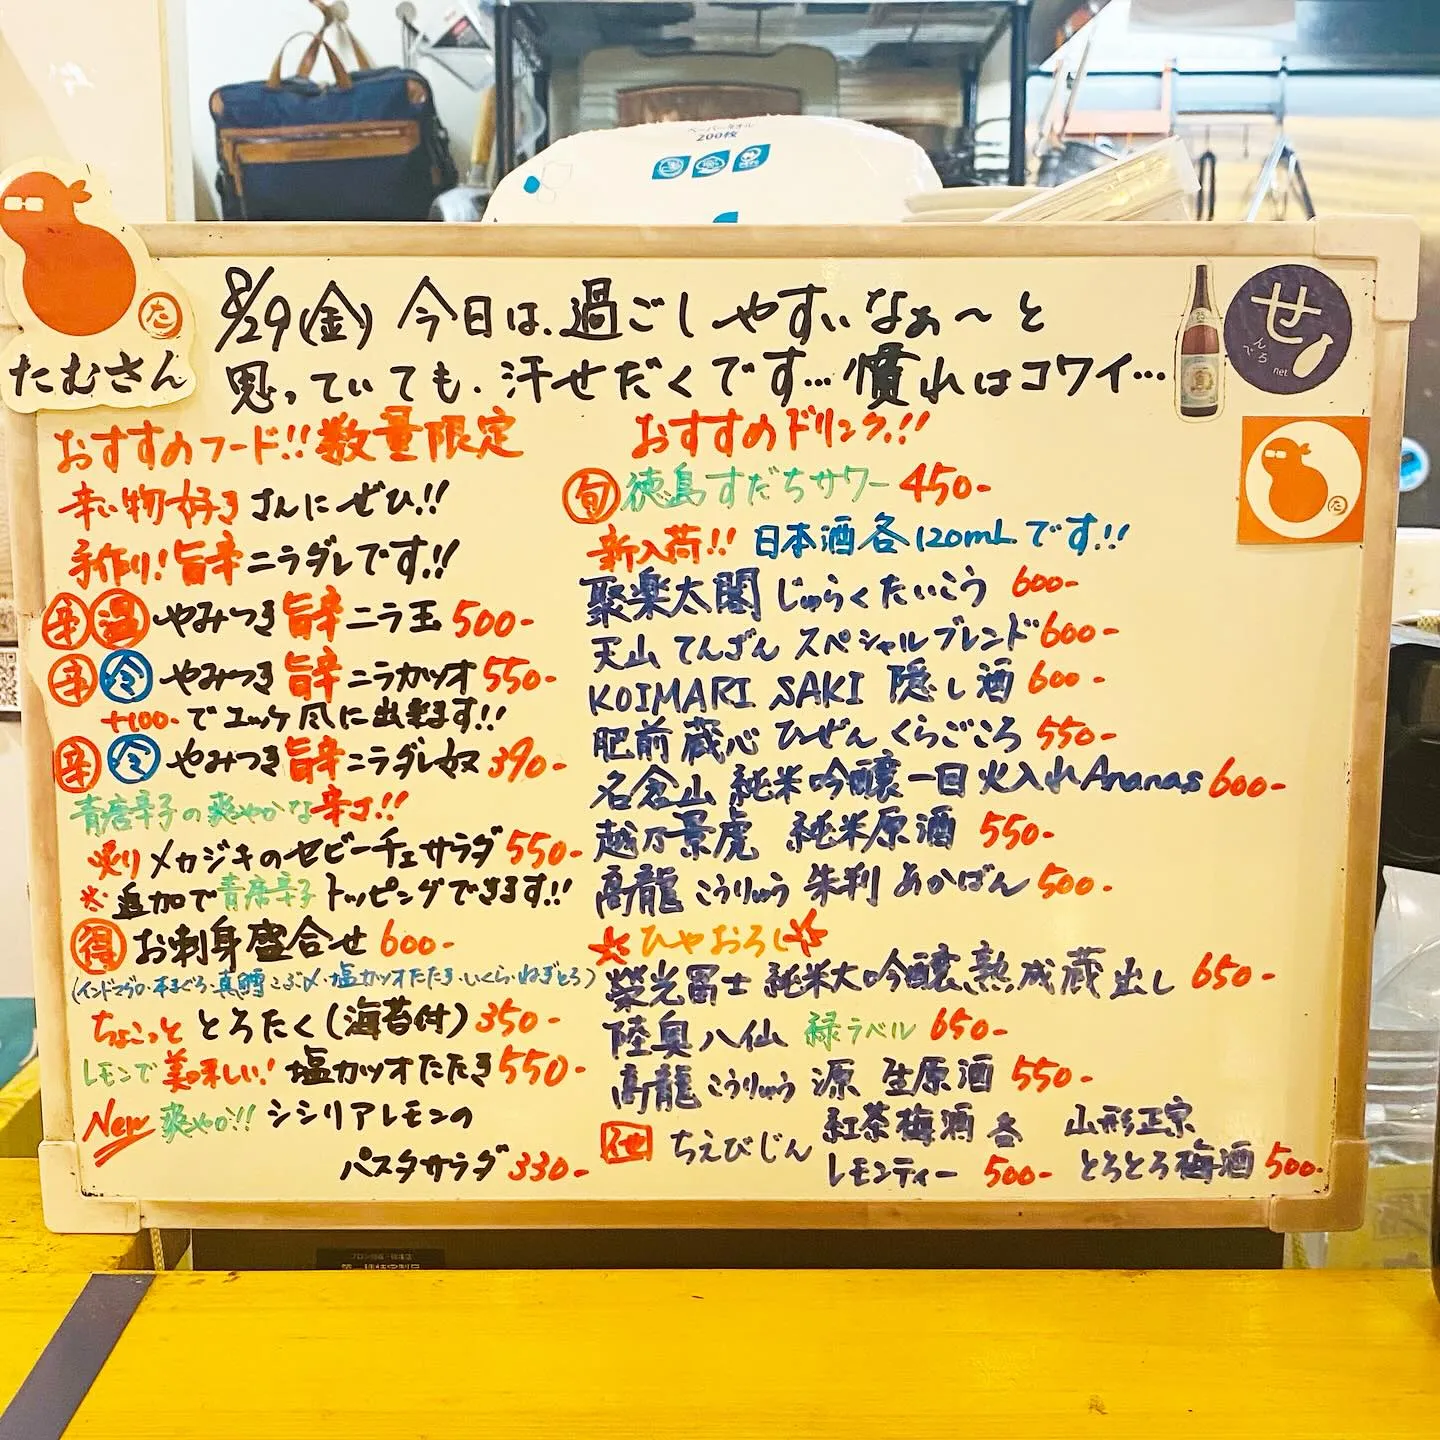 ペーパータオル
200枚
たむさん
た
せ
んべろ
net
8/29(金) 今日は、過ごしやすいなぁ〜と
思っていても、汗せだくです…慣れはコワイ…
おすすめフード!! 数量限定
辛い物好きさんにぜひ!!
手作り!旨辛ニラダレです!!
辛 温 やみつき旨辛ニラ玉 500-
辛 冷 やみつき旨辛ニラカツオ 550-
+100-でユッケ風に出来ます!!
辛 冷 やみつき旨辛ニラダレ奴 390-
青唐辛子の爽やかな辛さ!!
炙りメカジキのセビーチェサラダ 550-
※追加で青唐辛子トッピングできます!!
得 お刺身盛合せ 600-
(インドマグロ・本まぐろ・真鯛こぶ〆・塩カツオたたき・いくら・ねぎとろ)
ちょこっと とろたく(海苔付) 350-
レモンで美味しい! 塩カツオたたき 550-
New 爽やか!! シシリアレモンの
パスタサラダ 330-
おすすめドリンク!!
旬 徳島すだちサワー 450-
新入荷!! 日本酒各120mLです!!
聚楽太閤 じゅらくたいこう 600-
天山 てんざん スペシャルブレンド 600-
KOIMARI SAKI 隠し酒 600-
肥前蔵心 ひぜんくらごころ 550-
名倉山 純米吟醸一回火入れ Ananas 600-
越乃景虎 純米原酒 550-
高龍 こうりゅう 朱判 あかばん 500-
ひやおろし
榮光冨士 純米大吟醸熟成蔵出し 650-
陸奥八仙 緑ラベル 650-
高龍 こうりゅう 源 生原酒 550-
他 ちえびじん 紅茶梅酒 各 レモンティー 500-
山形正宗 とろとろ梅酒 500-